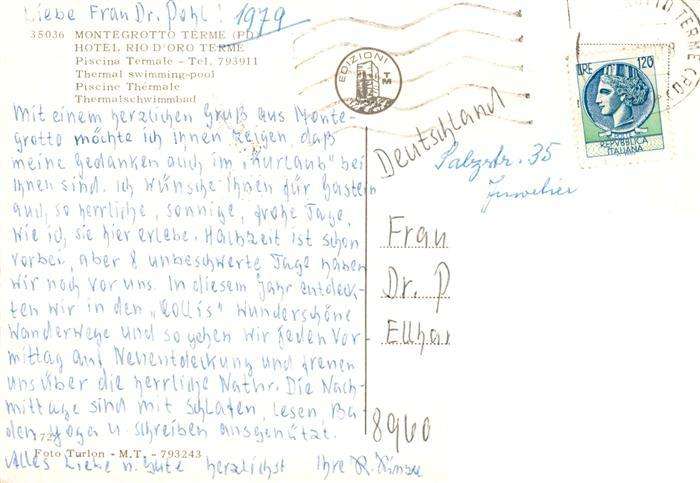 Liebe Frau Dr. Pohl! 1979
35036 MONTEGROTTO TERME (PD)
HOTEL RIO D'ORO TERME
Piscina Termale - Tel. 793911
Thermal swimming-pool
Piscine Thermale
Thermalschwimmbad
Mit einem herzlichen Gruß aus Monte-
grotto möchte ich Ihnen zeigen daß
meine Gedanken auch im "Kurlaub" bei
Ihnen sind. Ich wünsche Ihnen für Gastein
auch so herrliche, sonnige, frohe Tage,
wie ich sie hier erlebe. Halbzeit ist schon
vorbei, aber 8 unbeschwerte Tage haben
wir noch vor uns. In diesem Jahr entdeck-
ten wir in den "Collis" wunderschöne
Wanderwege und so gehen wir jeden Vor-
mittag auf Neuentdeckung und freuen
uns über die herrliche Natur. Die Nach-
mittage sind mit schlafen, lesen, Ba-
den, Yoga u. schreiben ausgenützt.
172
Foto Turlon - M.T. - 793243
Alles Liebe u. Gute herzlichst Ihre R.
EDIZIONI TM
TERME (PD)
LIRE 120
REPUBBLICA
ITALIANA
Deutschland
Salzstr. 35
Juwelier
Frau
Dr. P
Ellha
8960